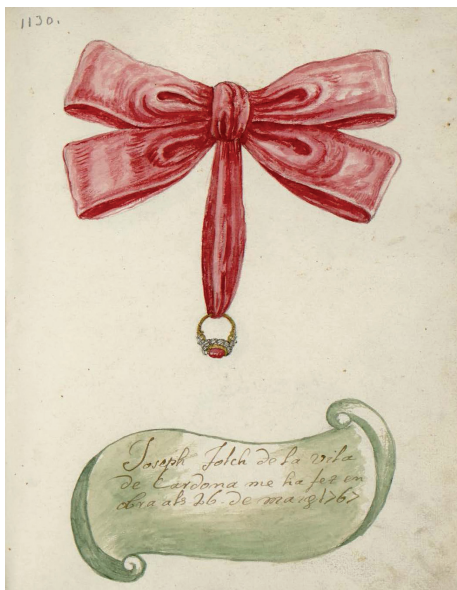 1130.
Joseph Folch de la vila
de Cardona me ha fet en
obra als 26 de mars 1767